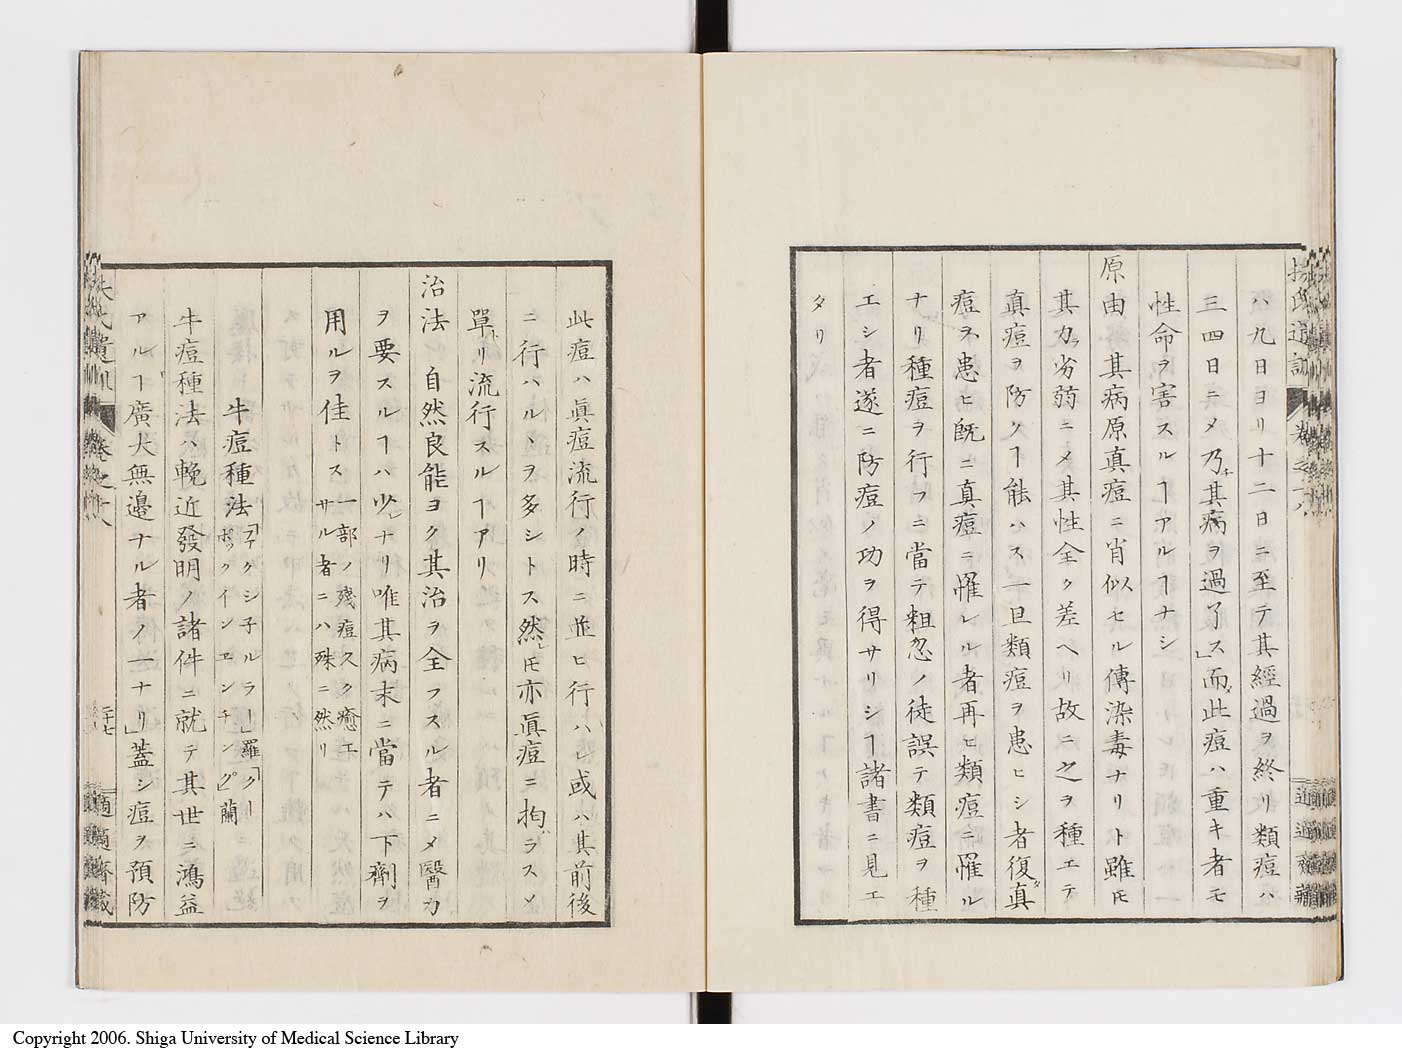 扶氏遺訓
卷之
適適齋藏
ハ九日ヨリ十二日ニ至テ其經過ヲ終リ類痘ハ
三四日ニ〆乃チ其病ヲ過了ス」而メ此痘ハ重キ者モ
性命ヲ害スルヿアルヿナシ
原由 其病原真痘ニ肖似セル傳染毒ナリト雖𪜈
其力劣弱ニ〆其性全ク差ヘリ故ニ之ヲ種エテ
真痘ヲ防クヿ能ハス一旦類痘ヲ患ヒシ者復真
痘ヲ患ヒ既ニ真痘ニ罹レル者再ヒ類痘ニ罹ル
ナリ種痘ヲ行フニ當テ粗忽ノ徒誤テ類痘ヲ種
エシ者遂ニ防痘ノ功ヲ得サリシヿ諸書ニ見エ
タリ
此痘ハ眞痘流行ノ時ニ並ヒ行ハレ或ハ其前後
ニ行ハルヽヲ多シトス然レ𪜈亦眞痘ニ拘ハラスノ
單リ流行スルヿアリ
治法 自然良能ヨク其治ヲ全フスル者ニ〆醫力
ヲ要スルヿハ少ナリ唯其病末ニ當テハ下劑ヲ
用ルヲ佳トス 一部ノ殘痘久ク癒エ
サル者ニハ殊ニ然リ
牛痘種法 「ファクシ子ルラ」羅「クー
ポックインエンチング」蘭
牛痘種法ハ輓近發明ノ諸件ニ就テ其世ニ鴻益
アルヿ廣大無邊ナル者ノ一ナリ」蓋シ痘ヲ預防
扶氏遺訓
卷之六
二十七
適適齋藏
Copyright 2006. Shiga University of Medical Science Library